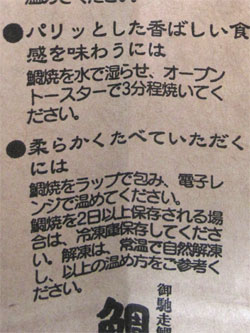 温めてください。
●パリッとした香ばしい食
感を味わうには
鯛焼を水で湿らせ、オーブン
トースターで3分程焼いてく
ださい。
●柔らかくたべていただく
には
鯛焼をラップで包み、電子レ
ンジで温めてください。
鯛焼を2日以上保存される場
合は、冷凍庫保存してくださ
い。解凍は、常温で自然解凍
し、以上の温め方をご参考く
ださい。
御馳走鯛
鯛